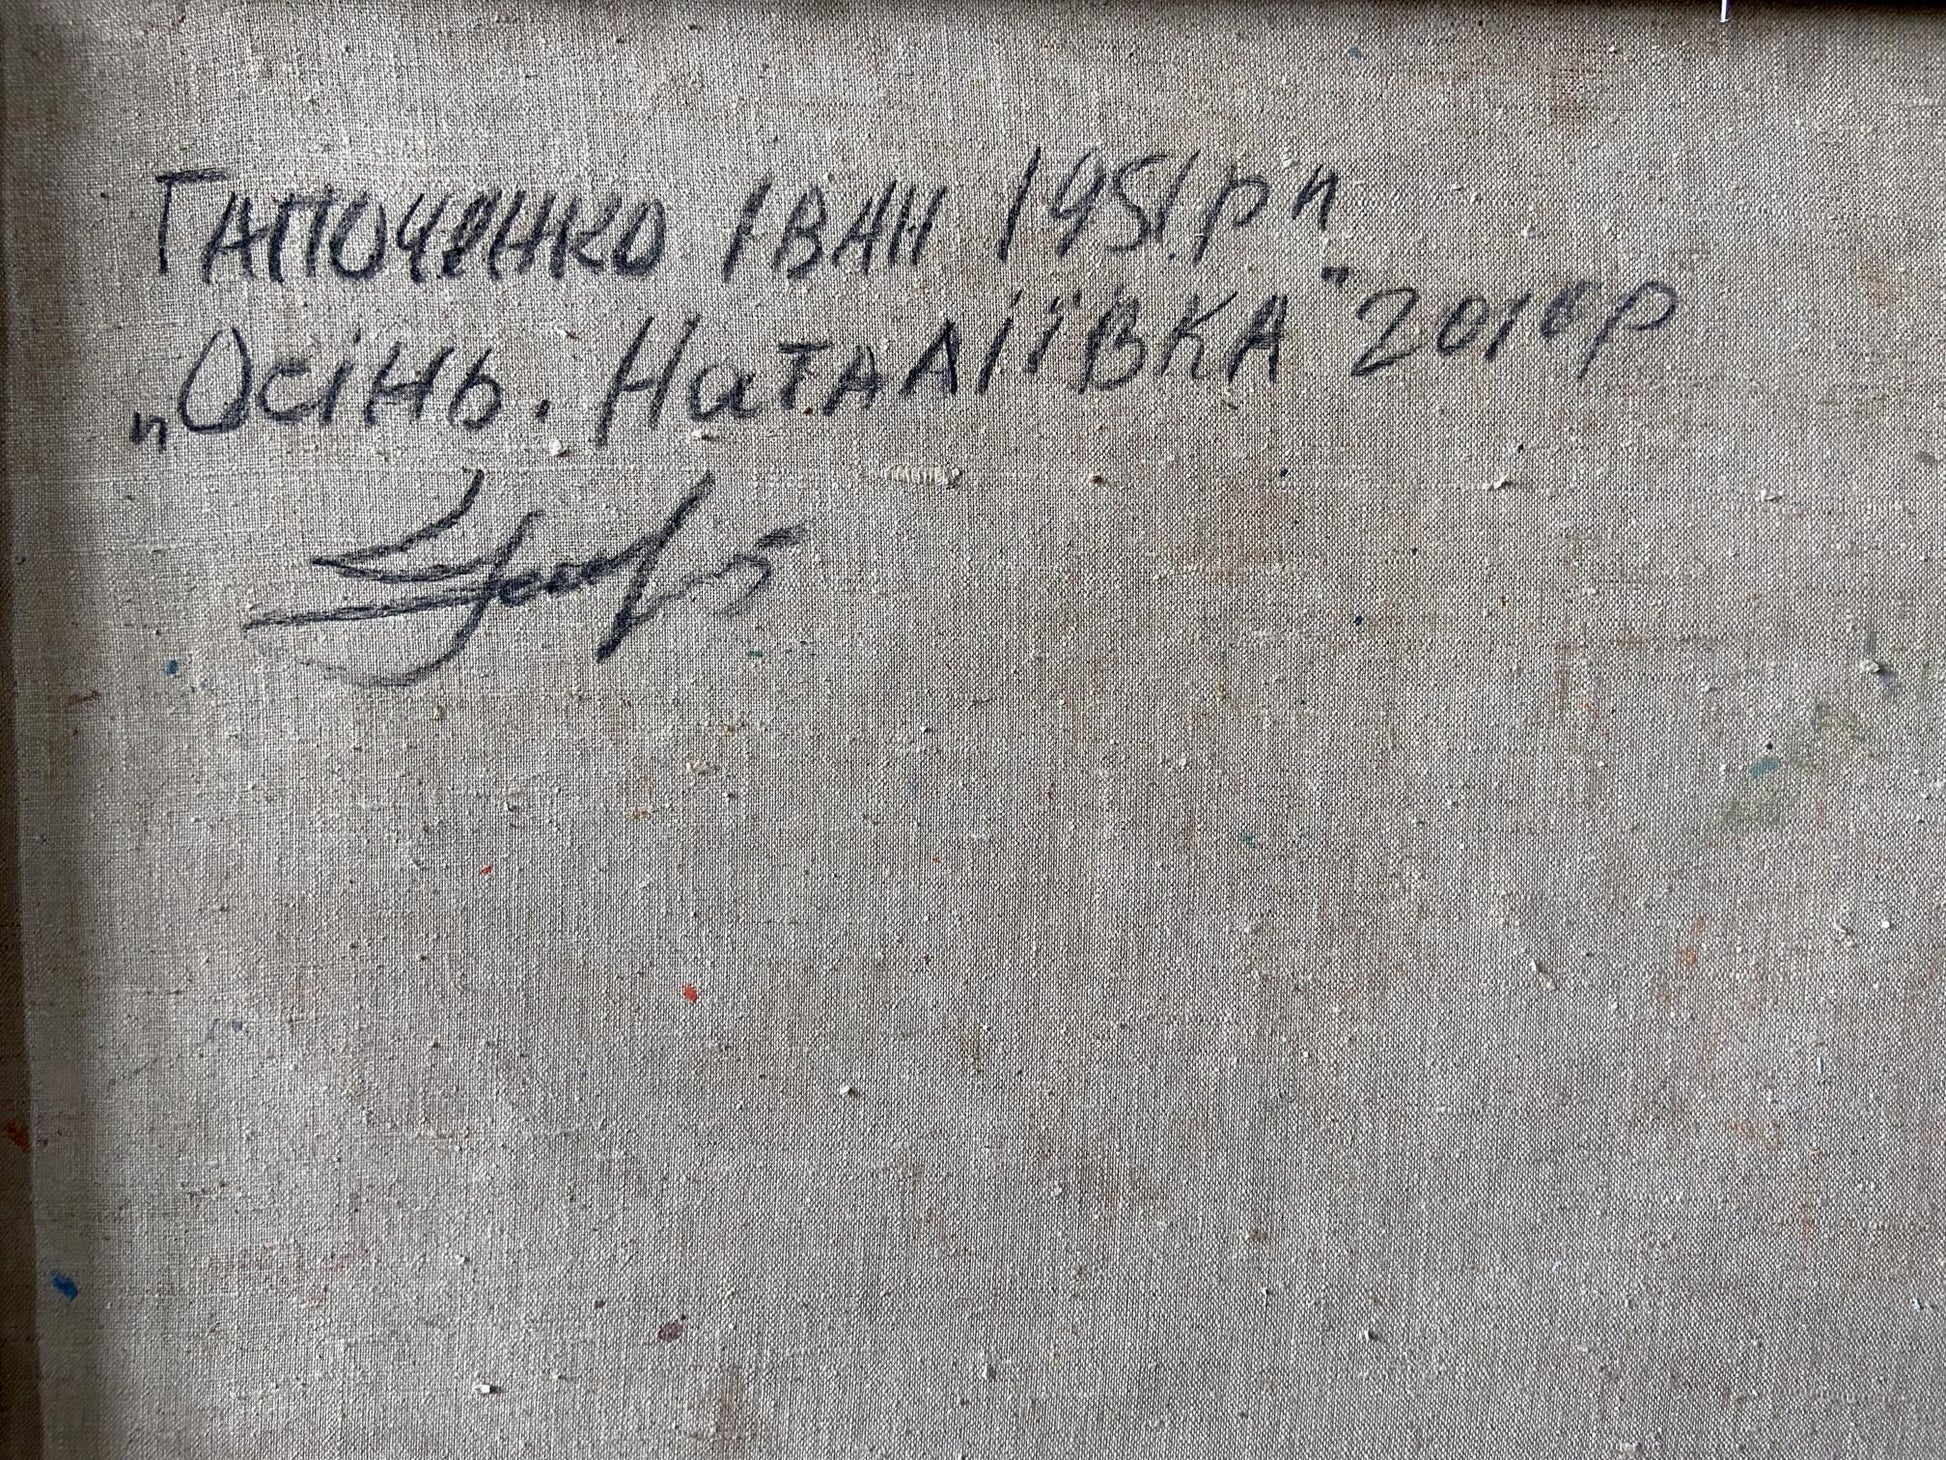 Гапоченко Іван 1951.рн
„Осінь. Наталіївка" р